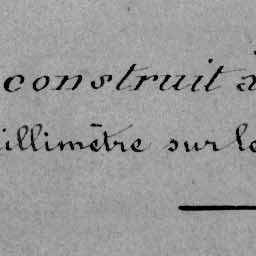 construit à
illimètre sur le